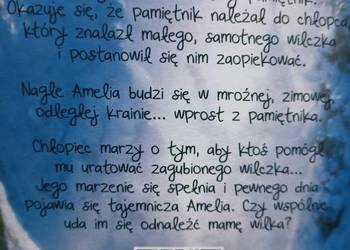 Okazuje się, że pamiętnik należał do chłopca,
który znalazł małego, samotnego wilczka
i postanowił się nim zaopiekować.
Nagle Amelia budzi się w mroźnej, zimowej,
odległej krainie... wprost z pamiętnika.
Chłopiec marzy o tym, aby ktoś pomógł
mu uratować zagubionego wilczka...
Jego marzenie się spełnia i pewnego dnia
pojawia się tajemnicza Amelia. Czy wspólnie
uda im się odnaleźć mamę wilka?